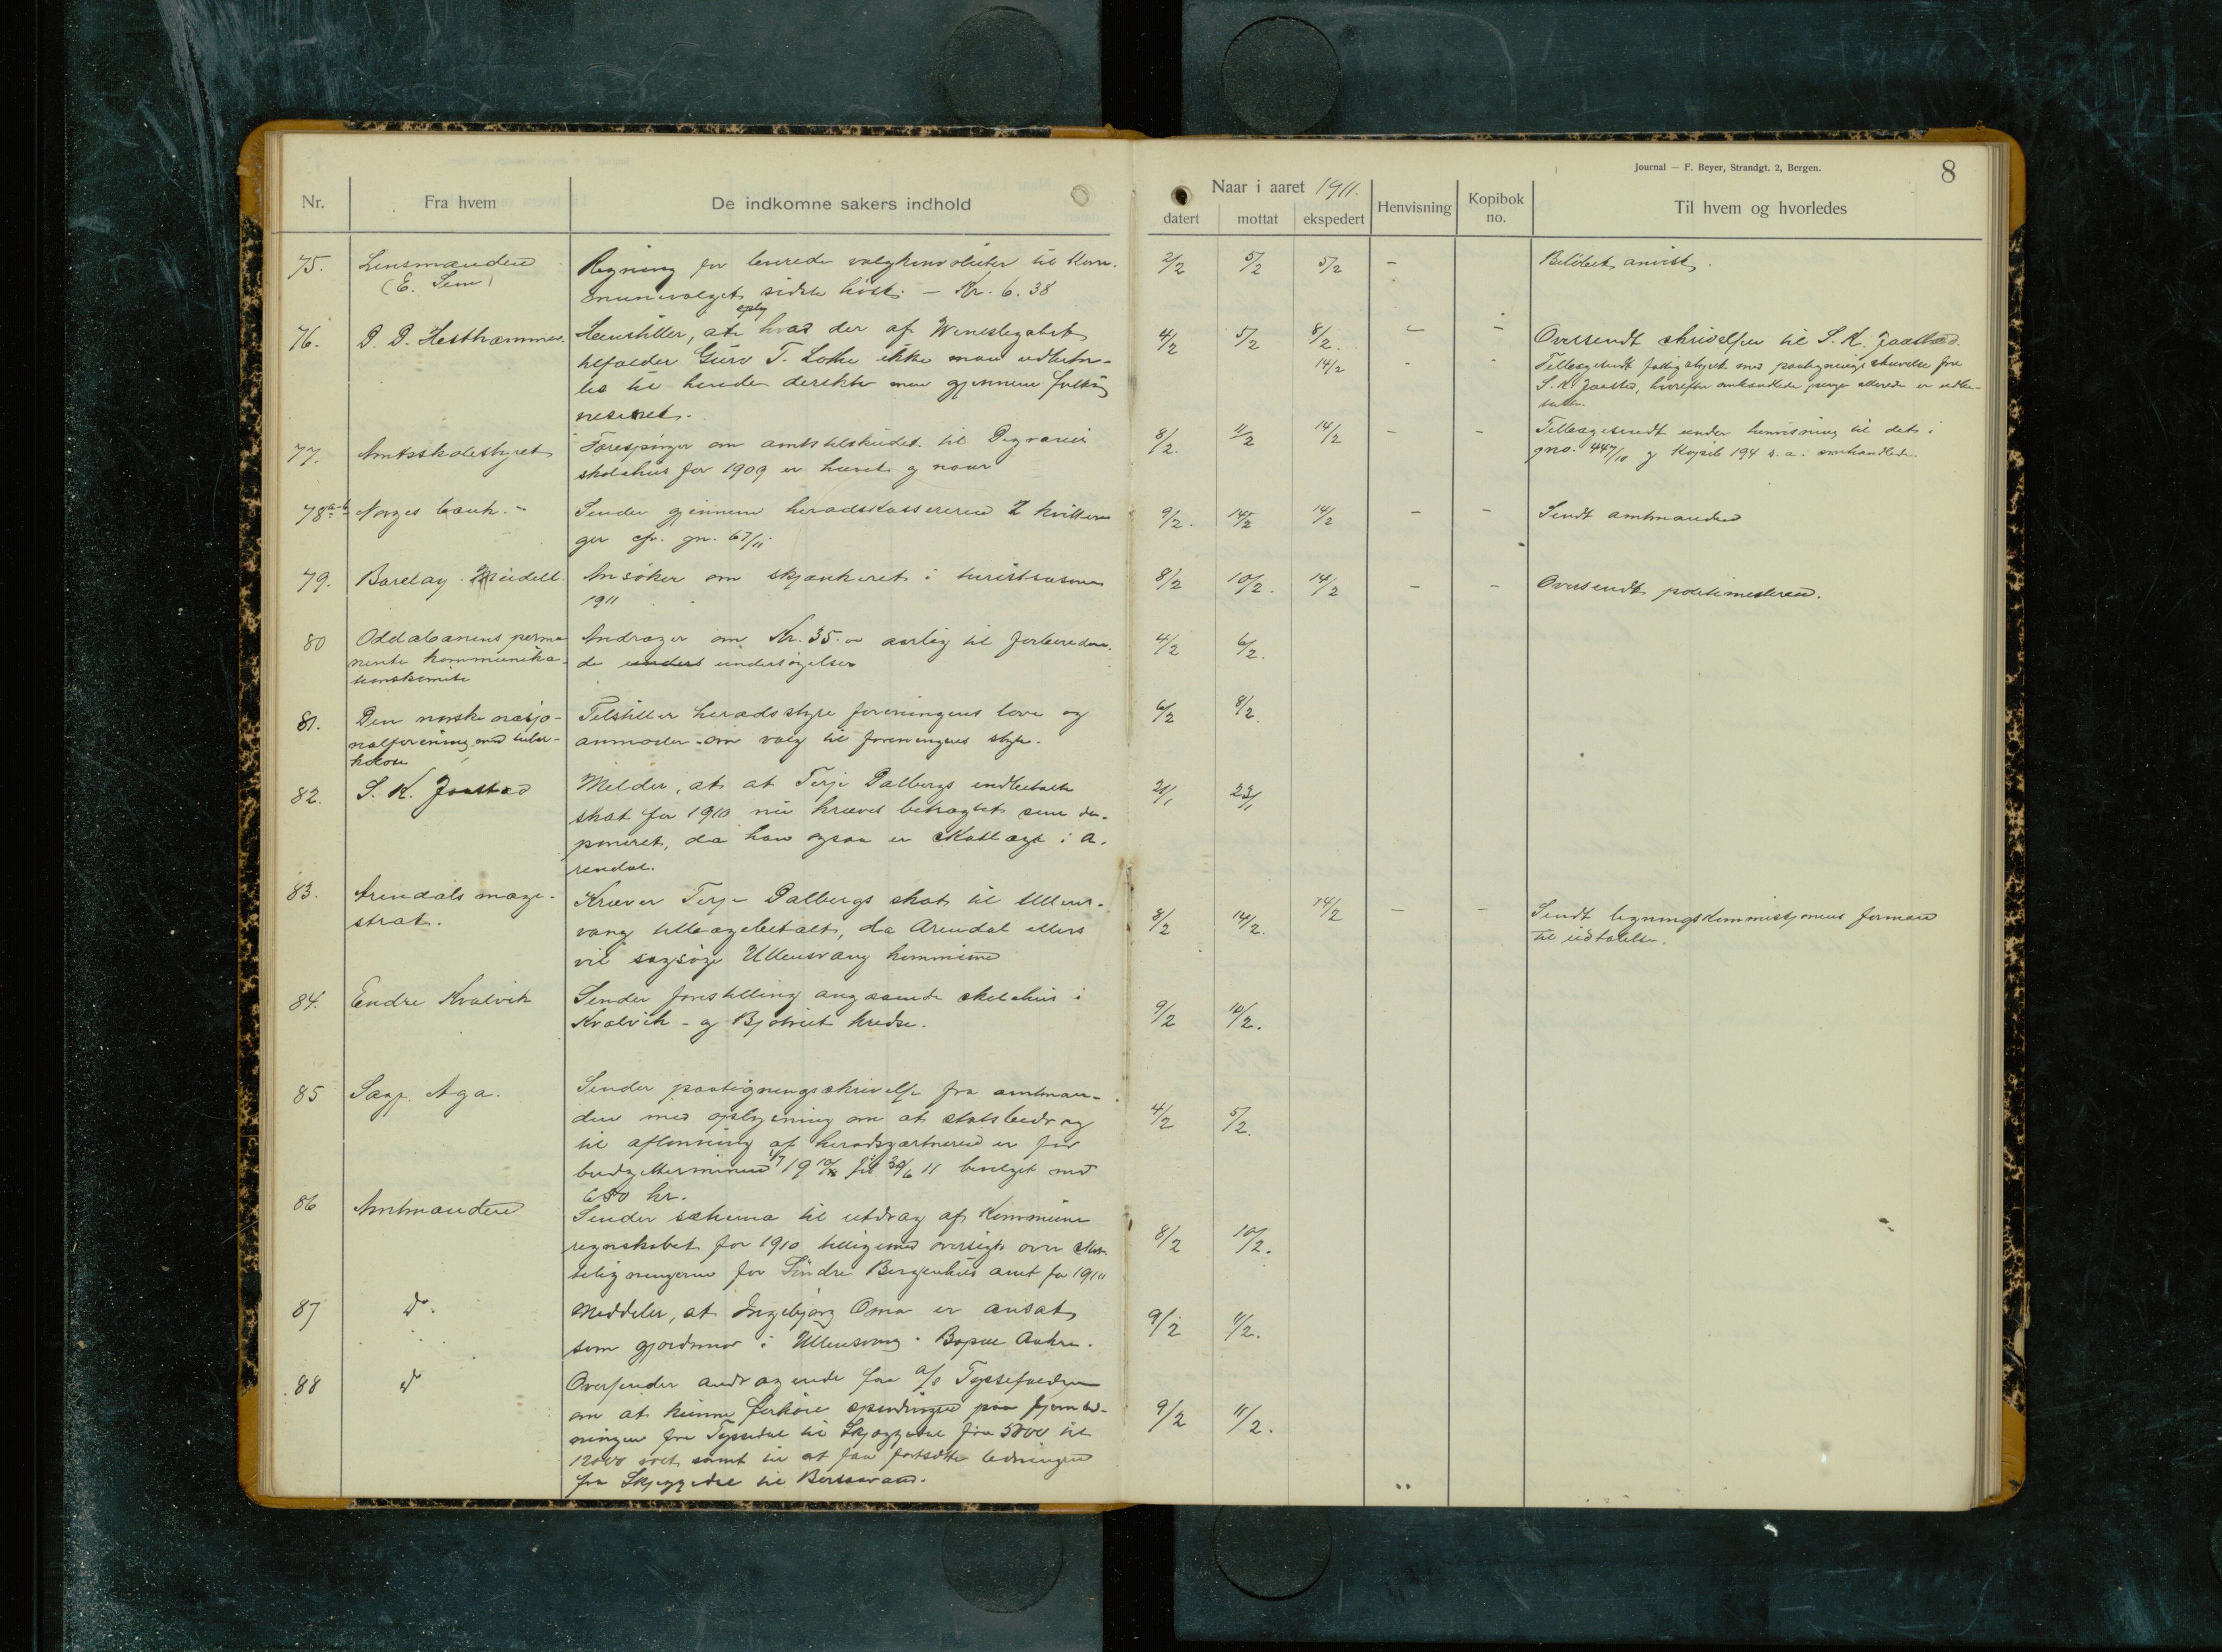 Journal — F. Beyer, Strandgt. 2, Bergen.
8
Nr.
Fra hvem
De indkomne sakers indhold
Naar i aaret 1911.
datert
mottat
ekspedert
Henvisning
Kopibok
no.
Til hvem og hvorledes
75.
Lensmanden
(E. Sem)
Regning for leverede valgkonvolutter til Kom-
munevalget sidste høst. - Kr. 6.38
2/2 5/2 5/2 -
Beløbet anvist.
76.
D. D. Hesthammer.
Henstiller, at hvad der af
tilfalder Guro T. Lothe ikke maa udbeta-
les til hende direkte men gjennem fattig
vesenet.
4/2 5/2 8/2. - -
14/2 - -
Oversendt skrivelsen til S. K. Jaastad.
Tilbagesendt fattigstyret med paategningsskrivelse fra
S. K. Jaastad, hvorefter omhandlede penge allerede er udbe-
talte.
77.
Amtsskolestyret
Forespørger om amtstilskudet til Digranes
skolehus for 1909 er hævet og naar
8/2. 11/2 14/2 - -
Tilbagesendt under henvisning til det i
gno. 447/10 og Kopib 194 s. a. omhandlede.
78 a-b
Norges bank. -
Sender gjennem heradskassereren 2 kvitterin
ger cfr. gn. 67/11
9/2. 14/2 14/2 - -
Sendt amtmanden
79.
Barclay Meidell.
Ansøker om skjænkeret i turistsæsonen
1911
8/2 10/2. 14/2 - -
Oversendt politimesteren.
80
Oddabanens perma
nente kommunika-
tionskomite
Andrager om Kr. 35.00 aarlig til forbereden-
de unders undersøgelser
4/2 6/2.
81.
Den norske nasjo-
nalforening mod tuber-
kulose
Tilstiller heradsstyre foreningens love og
anmoder om valg til foreningens styre.
6/2 8/2.
82.
S. K. Jaastad
Melder, at at Terje Dalbergs indbetalte
skat for 1910 nu kræves betragtet som de-
poneret, da han ogsaa er skatlagt i A-
rendal.
21/1 23/1
83.
Arendals magi-
strat.
Kræver Terje Dalbergs skat til Ullens-
vang tilbagebetalt, da Arendal ellers
vil sagsøge Ullensvang kommune
8/2 14/2. 14/2 - -
Sendt ligningskommissjonens formand
til udtalelse.
84.
Endre Kvalvik
Sender forestilling angaaende skolehus i
Kvalvik - og Bjotveit kredse.
9/2 10/2.
85
Sagf. Aga.
Sender paategningsskrivelse fra amtman-
den med oplysning om at statsbidrag
til aflønning af heradsgartneren er for
budgetterminen 1/7 1910 til 30/6 11 bevilget med
650 kr.
4/2 5/2.
86
Amtmanden
Sender schema til utdrag af Kommune
regnskabet for 1910 tilligemed oversigt over skat
teligningerne for Søndre Bergenhus amt for 1911
8/2 10/2.
87
do.
Meddeler, at Ingebjørg Oma er ansat
som gjordmor i Ullensvang. Bopæl
9/2 11/2.
88
do
Oversender andragende fra A/S Tyssefaldene
om at kunne forhøie spendingen paa fjernled-
ningen fra Tyssedal til Skjæggedal fra 5000 til
12000 volt samt til at faa fortsætte ledningen
fra Skjeggedal til
9/2 11/2.